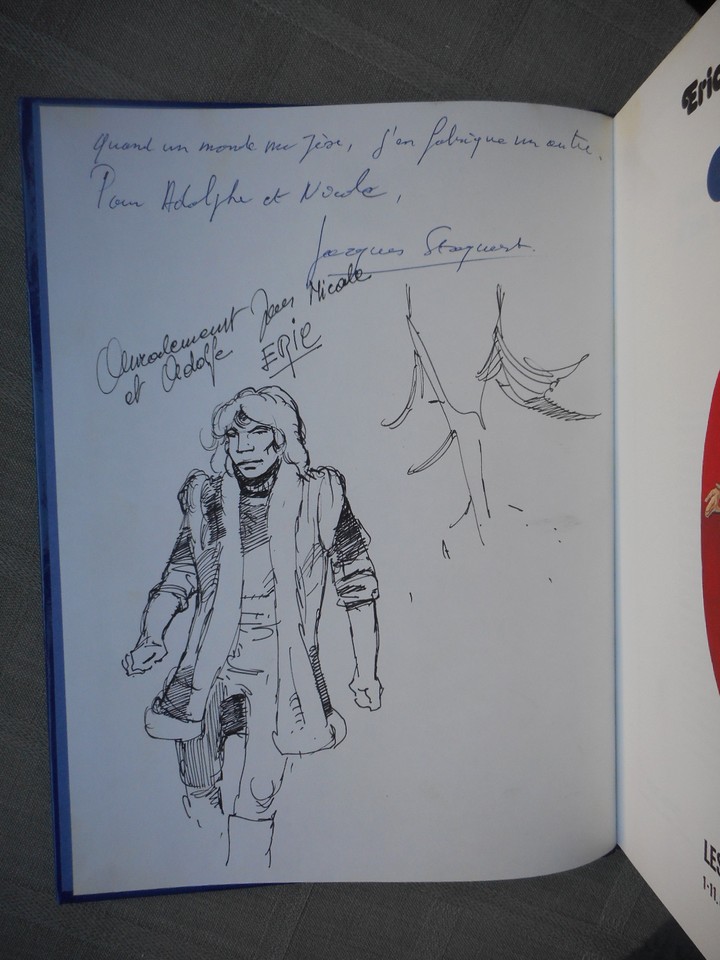 Quand un monde me gêne, j'en fabrique un autre.
Pour Adolphe et Nicole,
Jacques Stoquart.
Amicalement pour Nicole
et Adolfe
ERIC
Eric
LES
1-11.